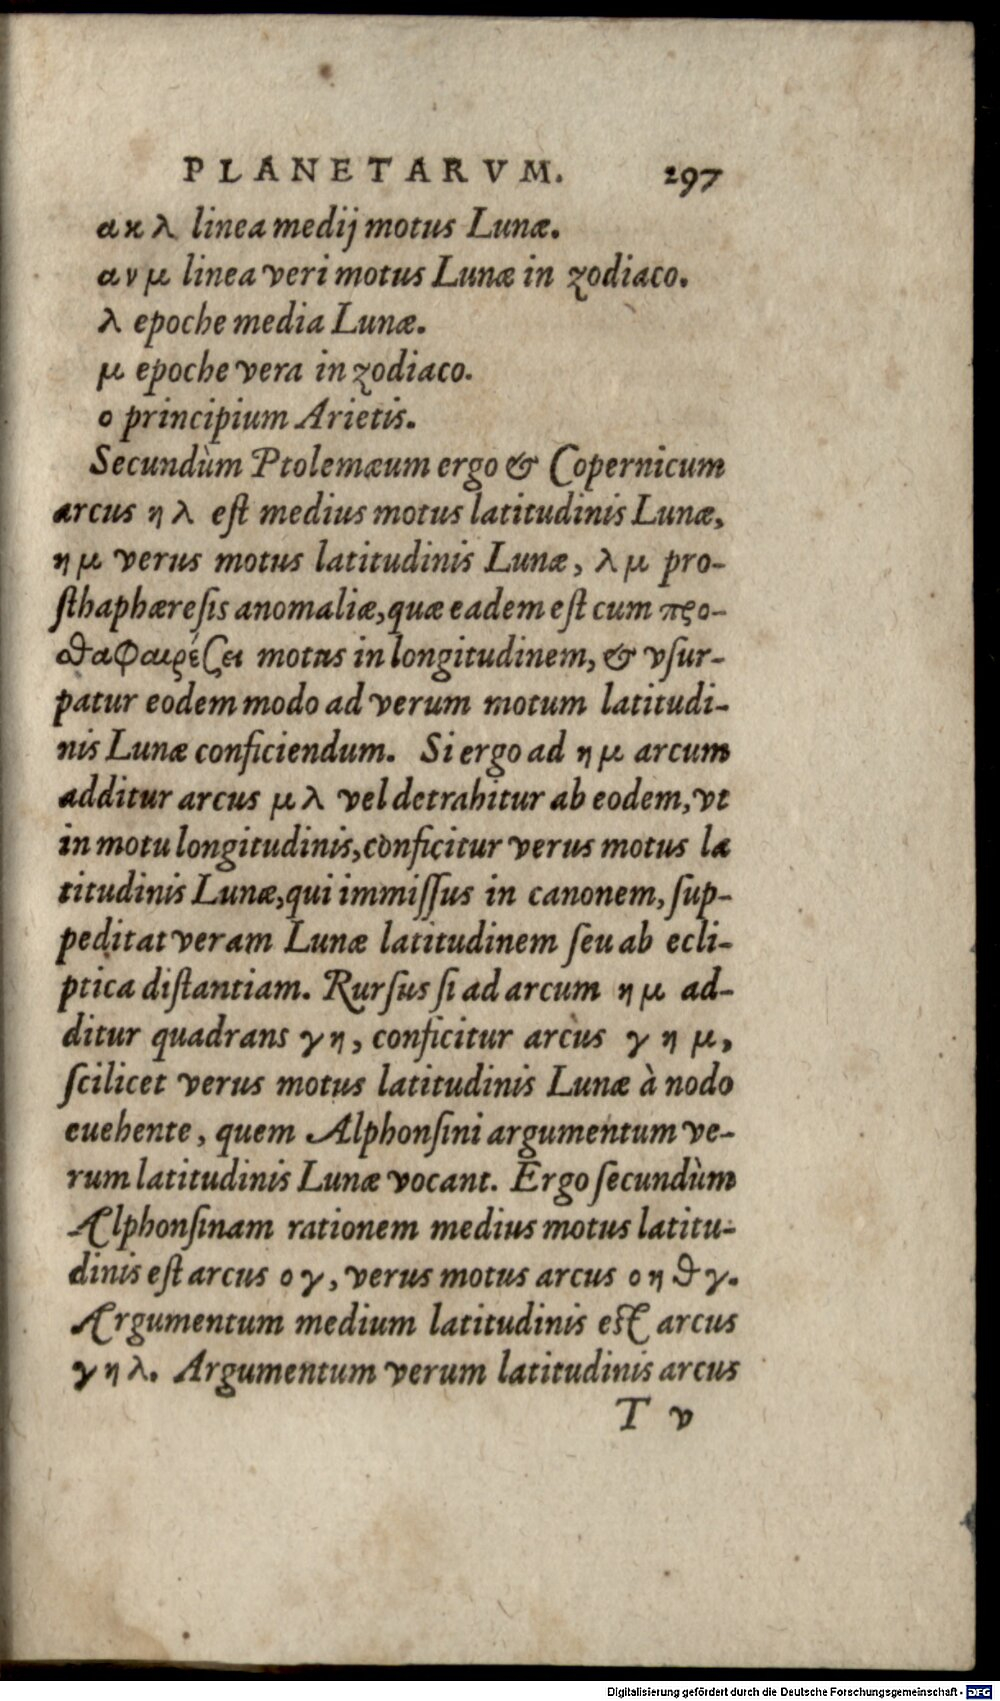 PLANETARVM. 297
α κ λ linea medij motus Lunæ.
α ν μ linea veri motus Lunæ in zodiaco.
λ epoche media Lunæ.
μ epoche vera in zodiaco.
o principium Arietis.
Secundùm Ptolemæum ergo & Copernicum
arcus η λ eſt medius motus latitudinis Lunæ,
η μ verus motus latitudinis Lunæ, λ μ pro-
ſthaphæreſis anomaliæ, quæ eadem eſt cum προ-
σθαφαιρέσει motus in longitudinem, & vſur-
patur eodem modo ad verum motum latitudi-
nis Lunæ conficiendum. Si ergo ad η μ arcum
additur arcus μ λ vel detrahitur ab eodem, vt
in motu longitudinis, conficitur verus motus la
titudinis Lunæ, qui immiſſus in canonem, ſup-
peditat veram Lunæ latitudinem ſeu ab ecli-
ptica diſtantiam. Rurſus ſi ad arcum η μ ad-
ditur quadrans γ η, conficitur arcus γ η μ,
ſcilicet verus motus latitudinis Lunæ à nodo
euehente, quem Alphonſini argumentum ve-
rum latitudinis Lunæ vocant. Ergo ſecundùm
Alphonſinam rationem medius motus latitu-
dinis eſt arcus o γ, verus motus arcus o η ϑ γ.
Argumentum medium latitudinis eſt arcus
γ η λ. Argumentum verum latitudinis arcus
T v
Digitalisierung gefördert durch die Deutsche Forschungsgemeinschaft - DFG